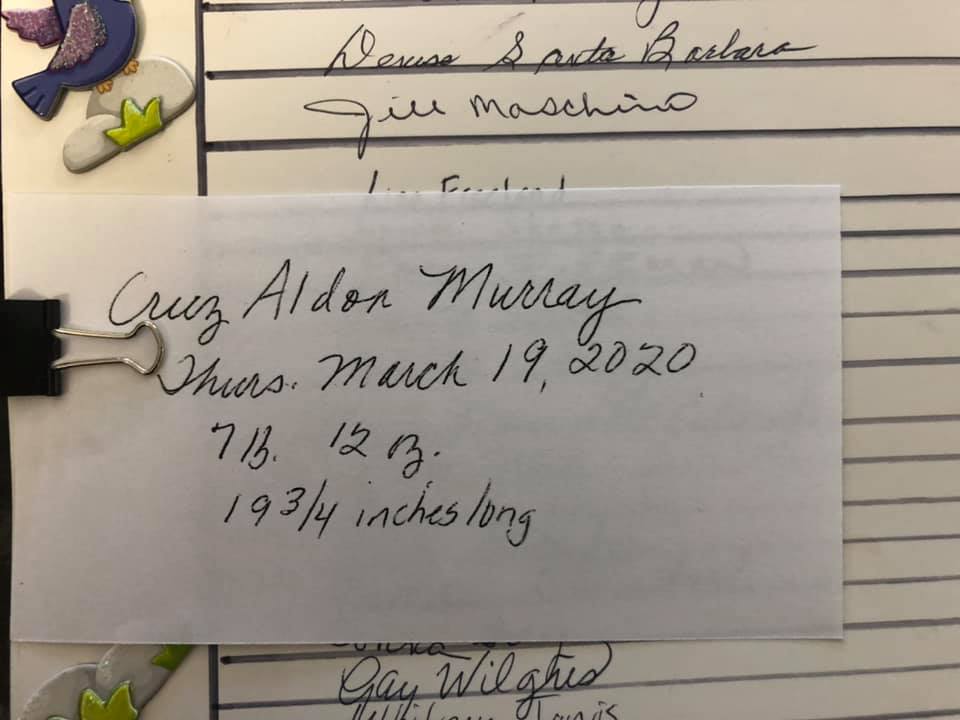 Denise Santa Barbara
Jill Maschino
Cruz Aldon Murray
Thurs. March 19, 2020
7 lb. 12 oz.
19 3/4 inches long
Gay Wilghus